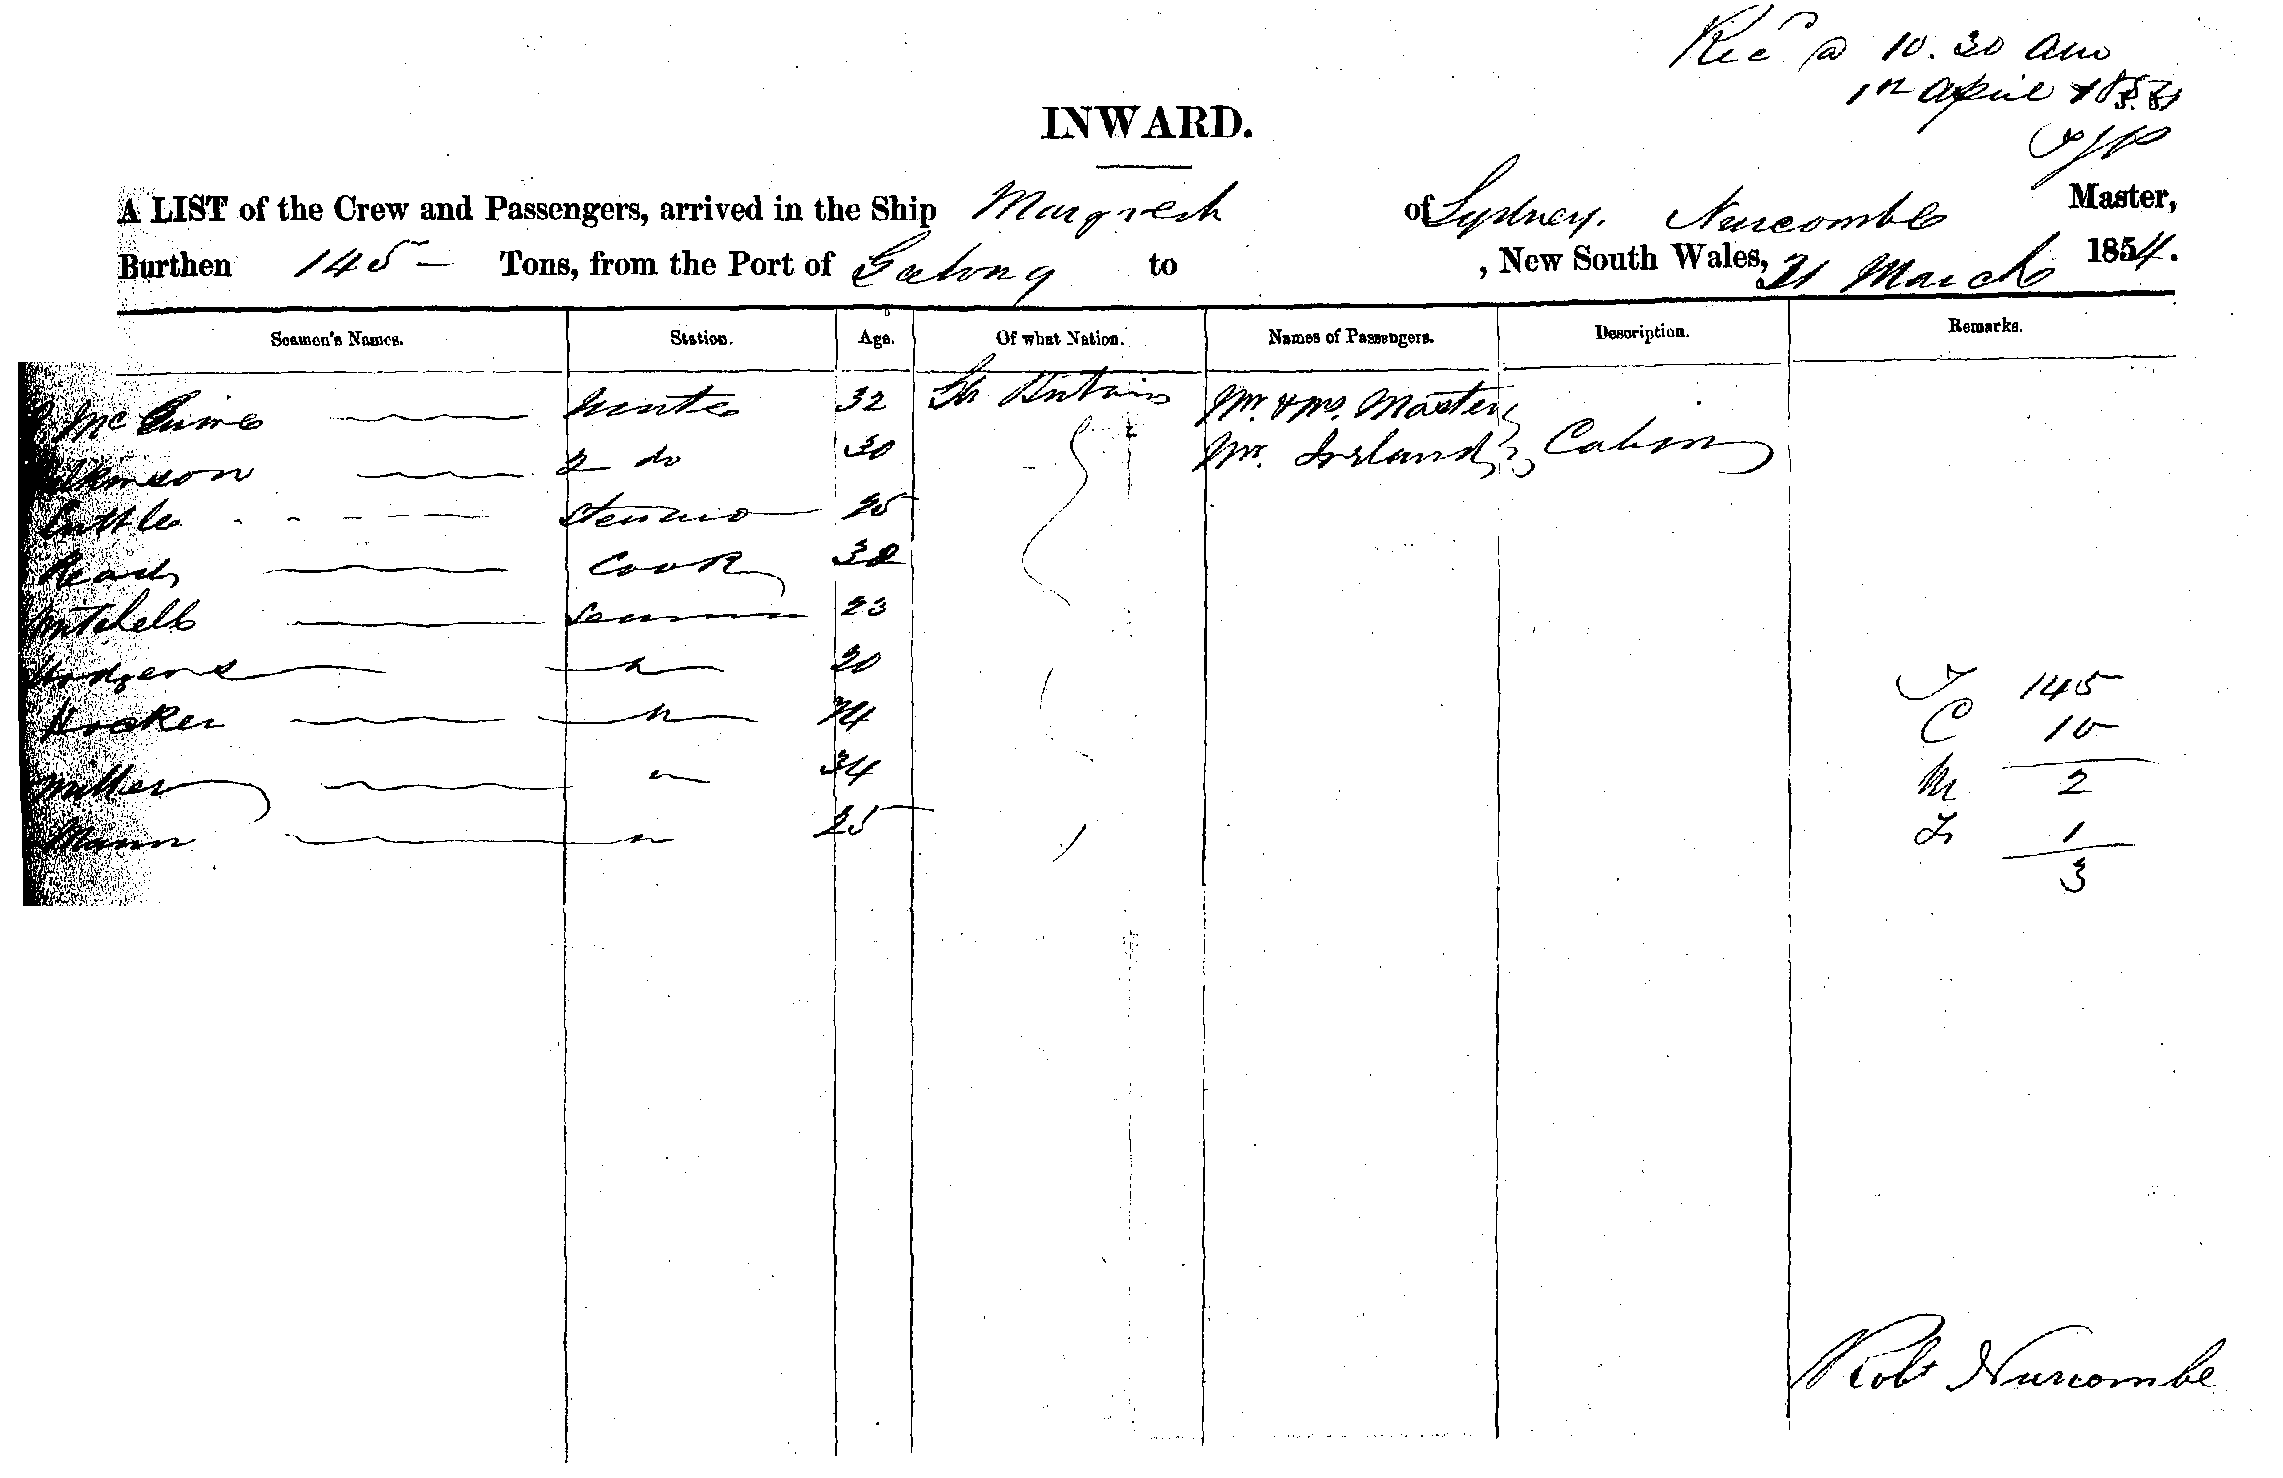 Recd @ 10.30 am
1st April 1854
INWARD.
A LIST of the Crew and Passengers, arrived in the Ship of Sydney. Nurcombe Master,
Burthen 145 - Tons, from the Port of Geelong to , New South Wales, 31 March 1854.
Seamen's Names. Station. Age. Of what Nation. Names of Passengers. Description. Remarks.
McGuire Mate 32 Gt Britain Mr. & Mrs. Masters
Wilkinson 2 do 30 Mr. Ireland Cabin
Steward 25
Read Cook
Mitchell Seaman 23
Hodgens " 20
Hooker " 24
Miller " 34
Mann " 25
T 145
C 10
M 2
F 1
3
Robt Nurcombe